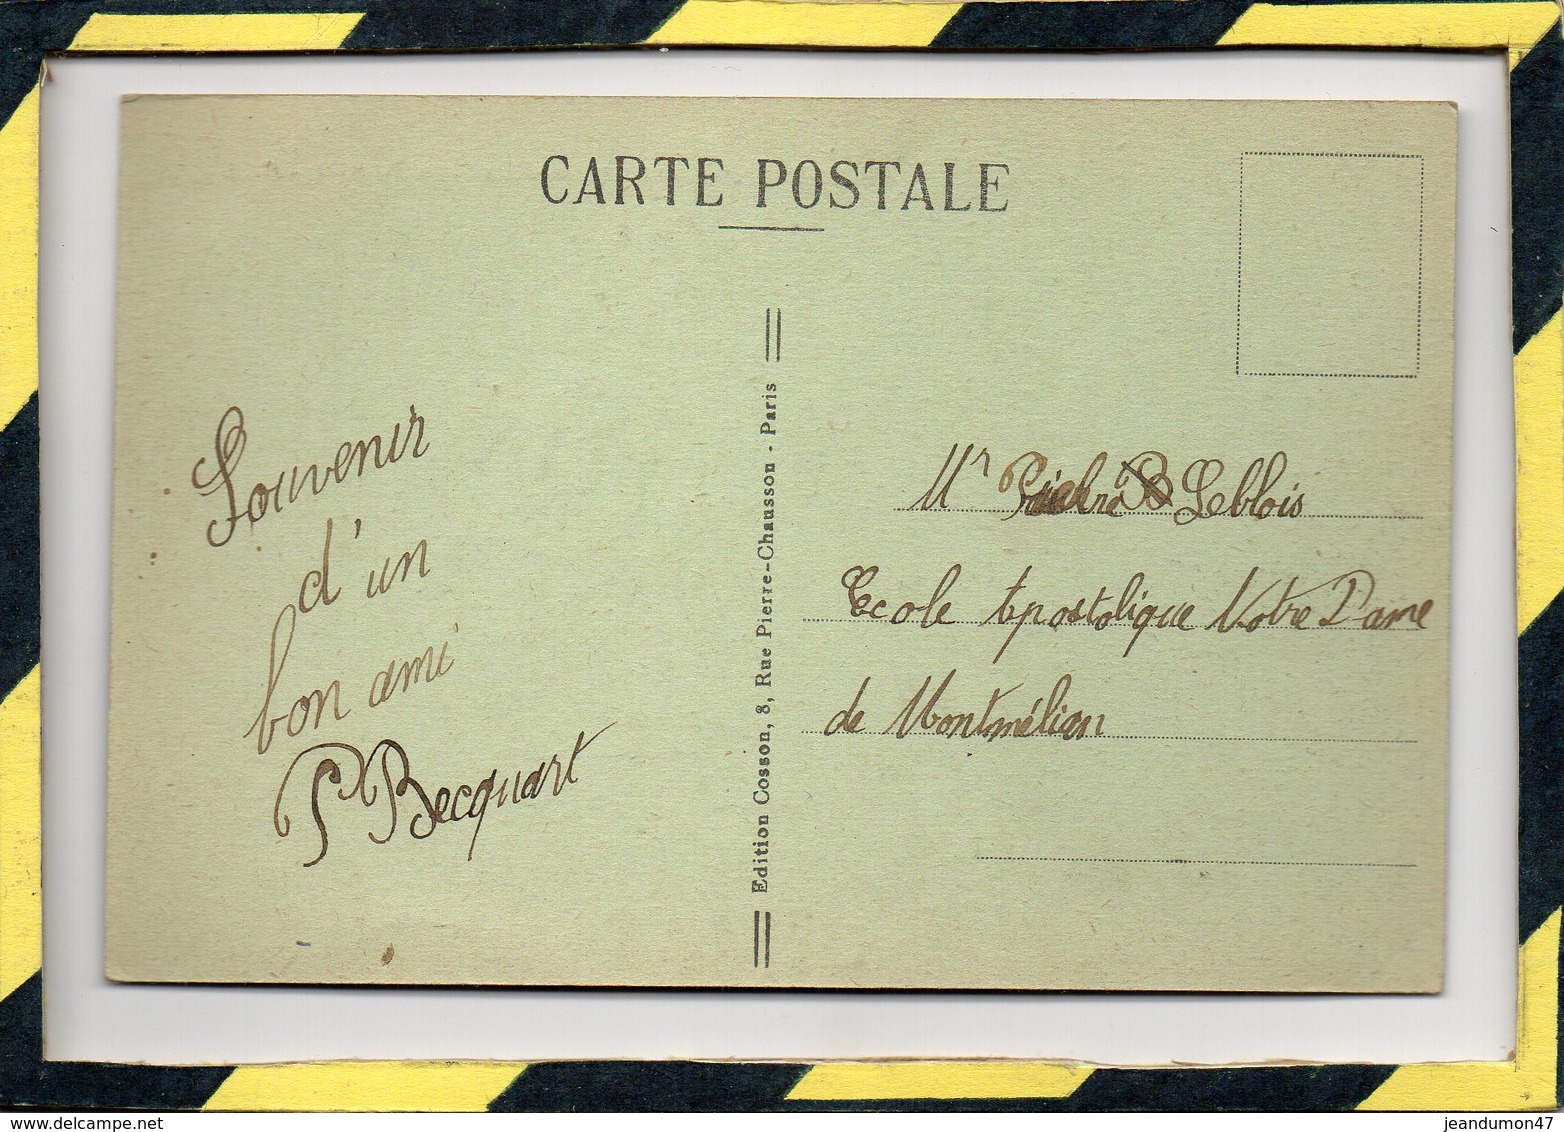 CARTE POSTALE
Souvenir
d'un
bon ami
P Becquart
Edition Cosson, 8, Rue Pierre-Chausson - Paris
Mr Leblois
Ecole Apostolique Notre Dame
de Montmélian
jeandumon47